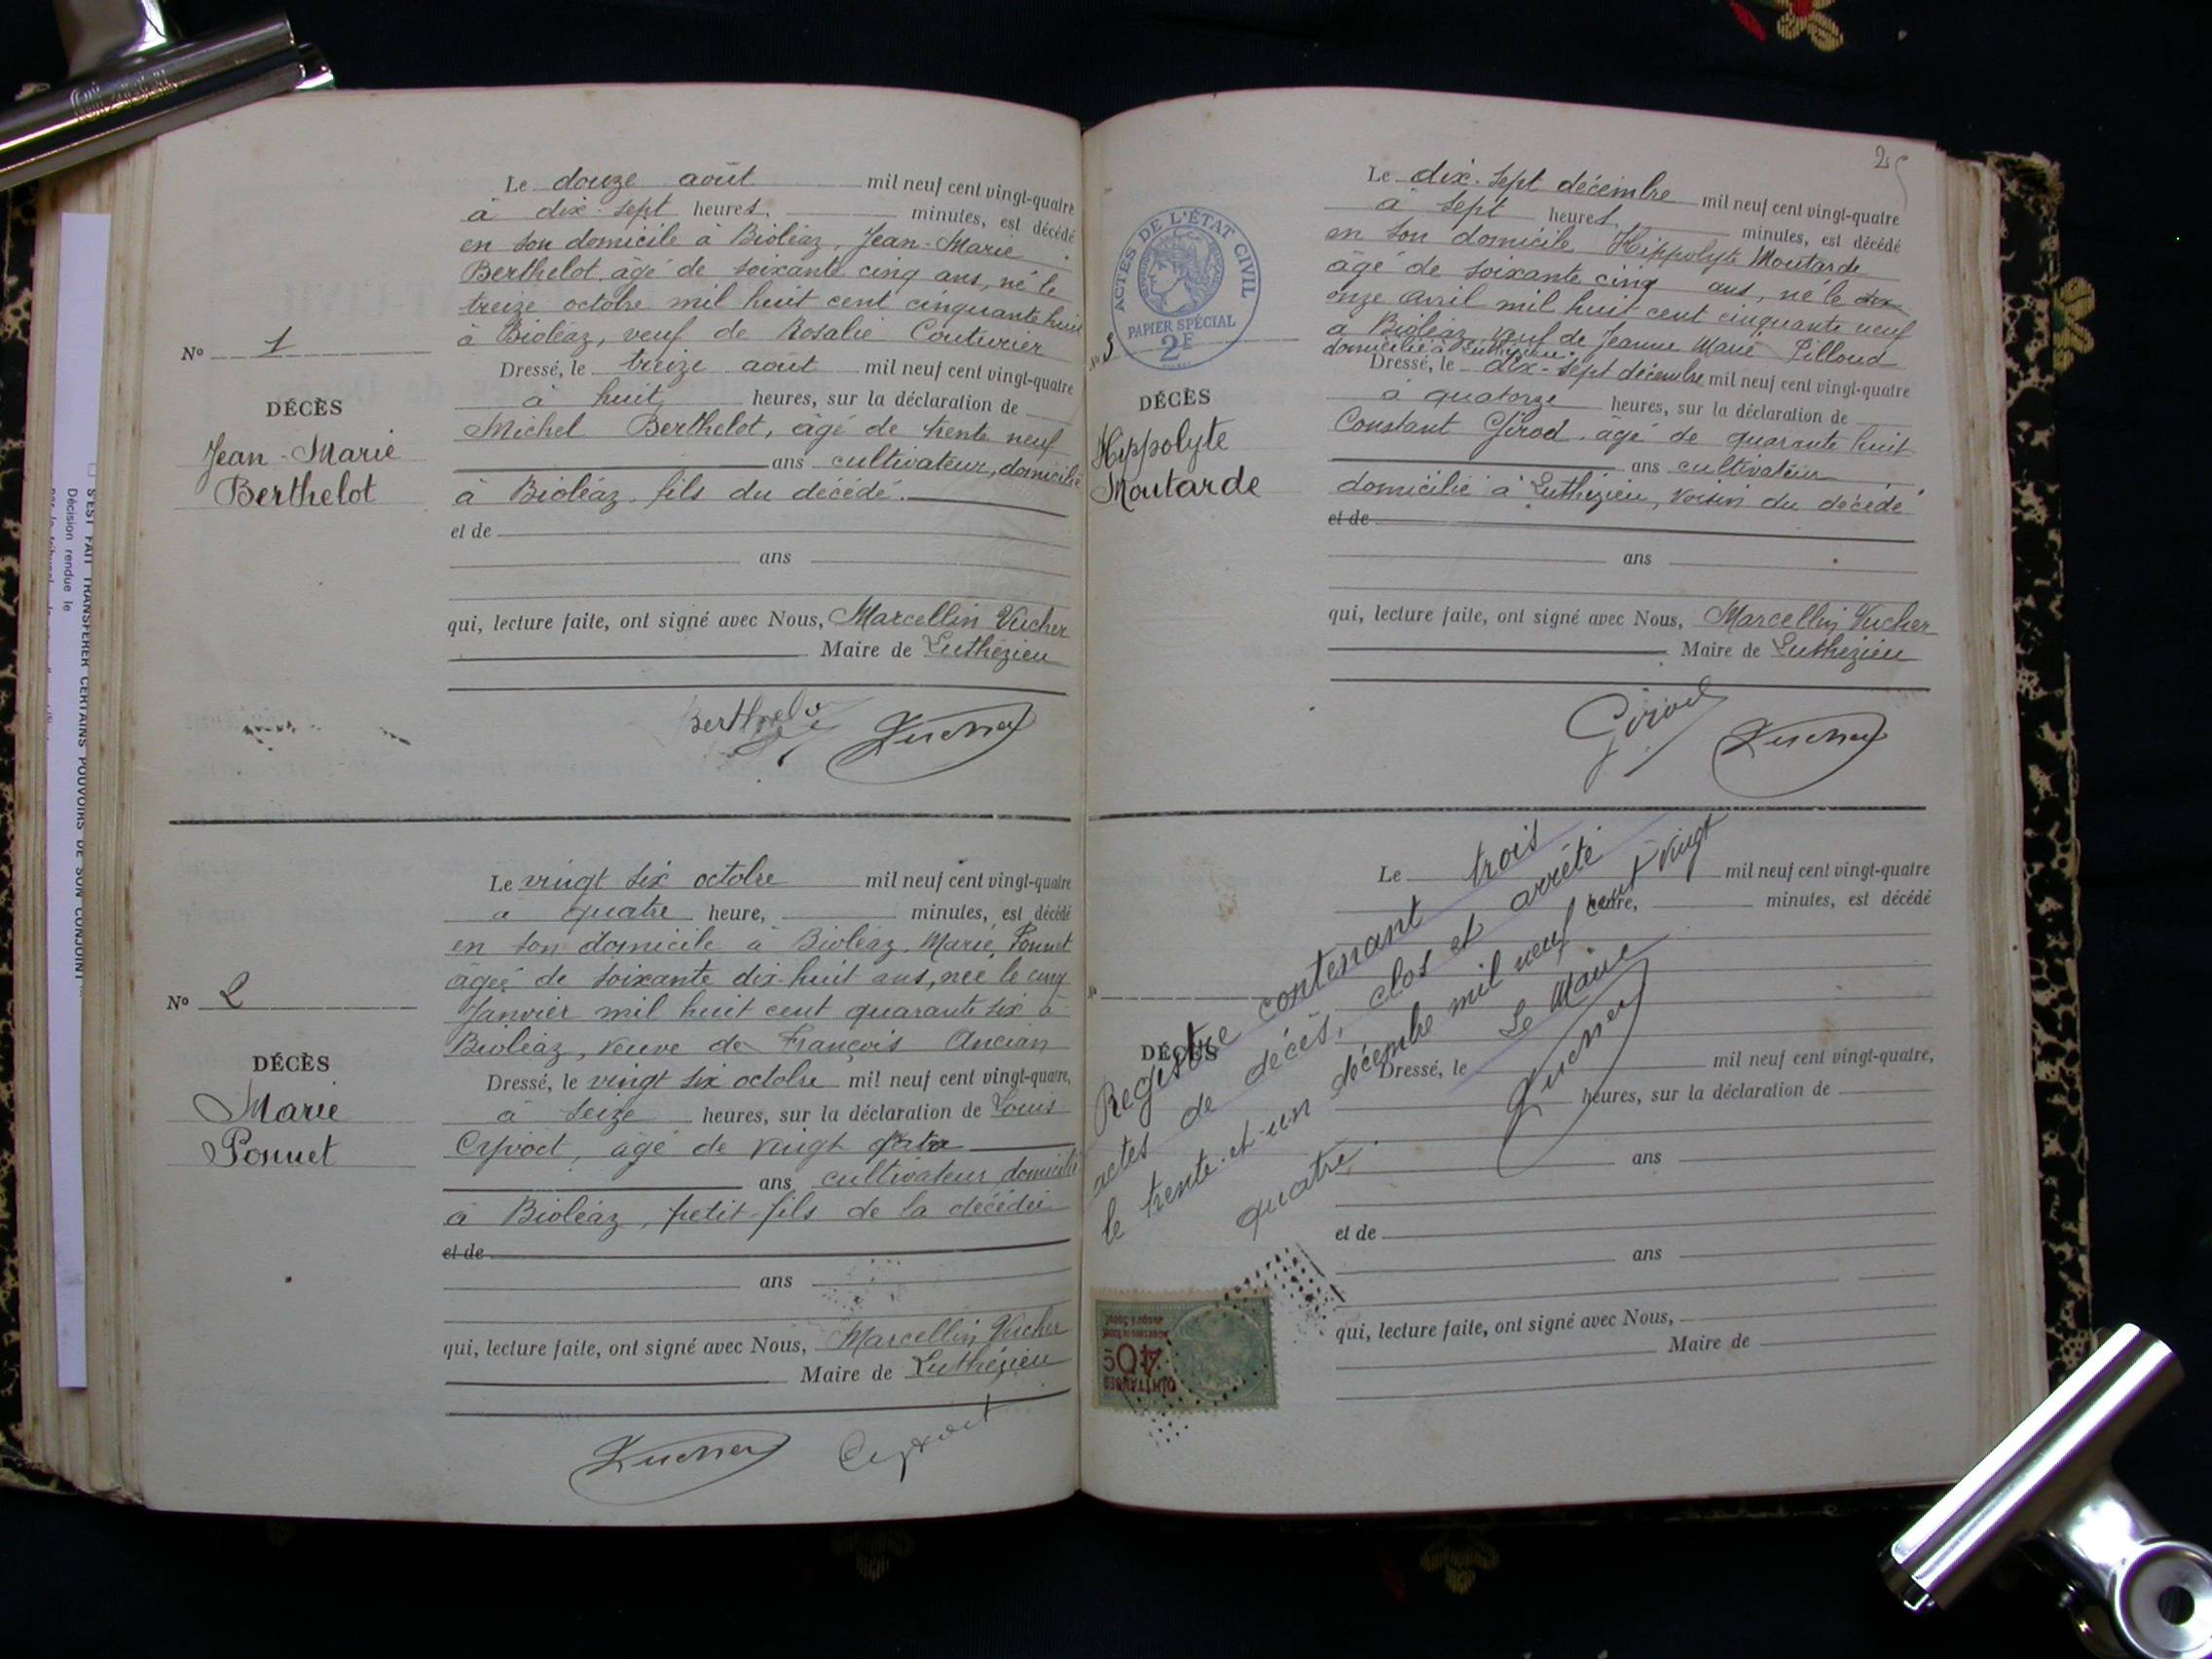 Le douze août mil neuf cent vingt-quatre
à dix-sept heures, minutes, est décédé
en son domicile à Bioléaz, Jean-Marie
Berthelot, âgé de soixante cinq ans, né le
treize octobre mil huit cent cinquante huit
à Bioléaz, veuf de Rosalie Couturier
No 1
Dressé, le treize août mil neuf cent vingt-quatre
à huit heures, sur la déclaration de
DÉCÈS
Michel Berthelot, âgé de trente neuf
Jean-Marie
ans cultivateur, domicilié
Berthelot
à Bioléaz, fils du décédé.
et de
ans
qui, lecture faite, ont signé avec Nous, Marcellin Vucher
Maire de Luthézieu
Berthelot Vucher
Le vingt six octobre mil neuf cent vingt-quatre
à quatre heure, minutes, est décédé
en son domicile à Bioléaz, Marie Ponnet
âgée de soixante dix-huit ans, née le cinq
No 2
Janvier mil huit cent quarante six à
Bioléaz, veuve de François Ancian
DÉCÈS
Dressé, le vingt six octobre mil neuf cent vingt-quatre,
Marie
à seize heures, sur la déclaration de Louis
Ponnet
âgé de vingt
ans cultivateur domicilié
à Bioléaz, petit-fils de la décédée
et de
ans
qui, lecture faite, ont signé avec Nous, Marcellin Vucher
Maire de Luthézieu
Vucher
25
Le dix-sept décembre mil neuf cent vingt-quatre
à sept heures, minutes, est décédé
en son domicile Hippolyte Moutarde
âgé de soixante cinq ans, né le dix
onze avril mil huit cent cinquante neuf
à Bioléaz, veuf de Jeanne Marie Pilloud
domicilié à Luthézieu.
ACTES DE L'ÉTAT CIVIL
PAPIER SPÉCIAL
2F
No 3
Dressé, le dix-sept décembre mil neuf cent vingt-quatre
à quatorze heures, sur la déclaration de
DÉCÈS
Constant Girod, âgé de quarante huit
Hippolyte
ans cultivateur
Moutarde
domicilié à Luthézieu, voisin du décédé
et de
ans
qui, lecture faite, ont signé avec Nous, Marcellin Vucher
Maire de Luthézieu
Girod Vucher
Le mil neuf cent vingt-quatre
heure, minutes, est décédé
DÉCÈS
Dressé, le mil neuf cent vingt-quatre,
heures, sur la déclaration de
ans
et de
ans
qui, lecture faite, ont signé avec Nous,
Maire de
Registre contenant trois
actes de décès, clos et arrêté
le trente-et-un décembre mil neuf cent vingt
quatre.
Le Maire
Vucher
QUITTANCES
40c
S'EST FAIT TRANSFÉRER CERTAINS POUVOIRS DE SON CONJOINT
Décision rendue le